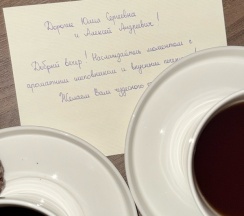 Дорогие Юлия Сергеевна
и Алексей Андреевич!
Добрый вечер! Насладитесь моментом с
ароматным напитком и вкусным
Желаем Вам чудесного